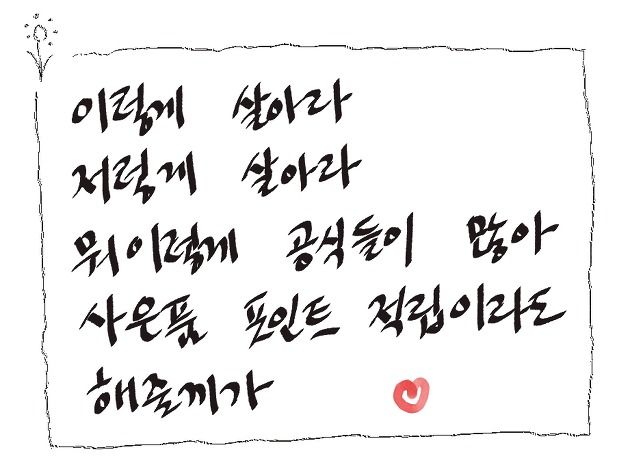 이렇게 살아라
저렇게 살아라
뭐이렇게 공식들이 많아
사은품 포인트 적립이라도
해줄끼가